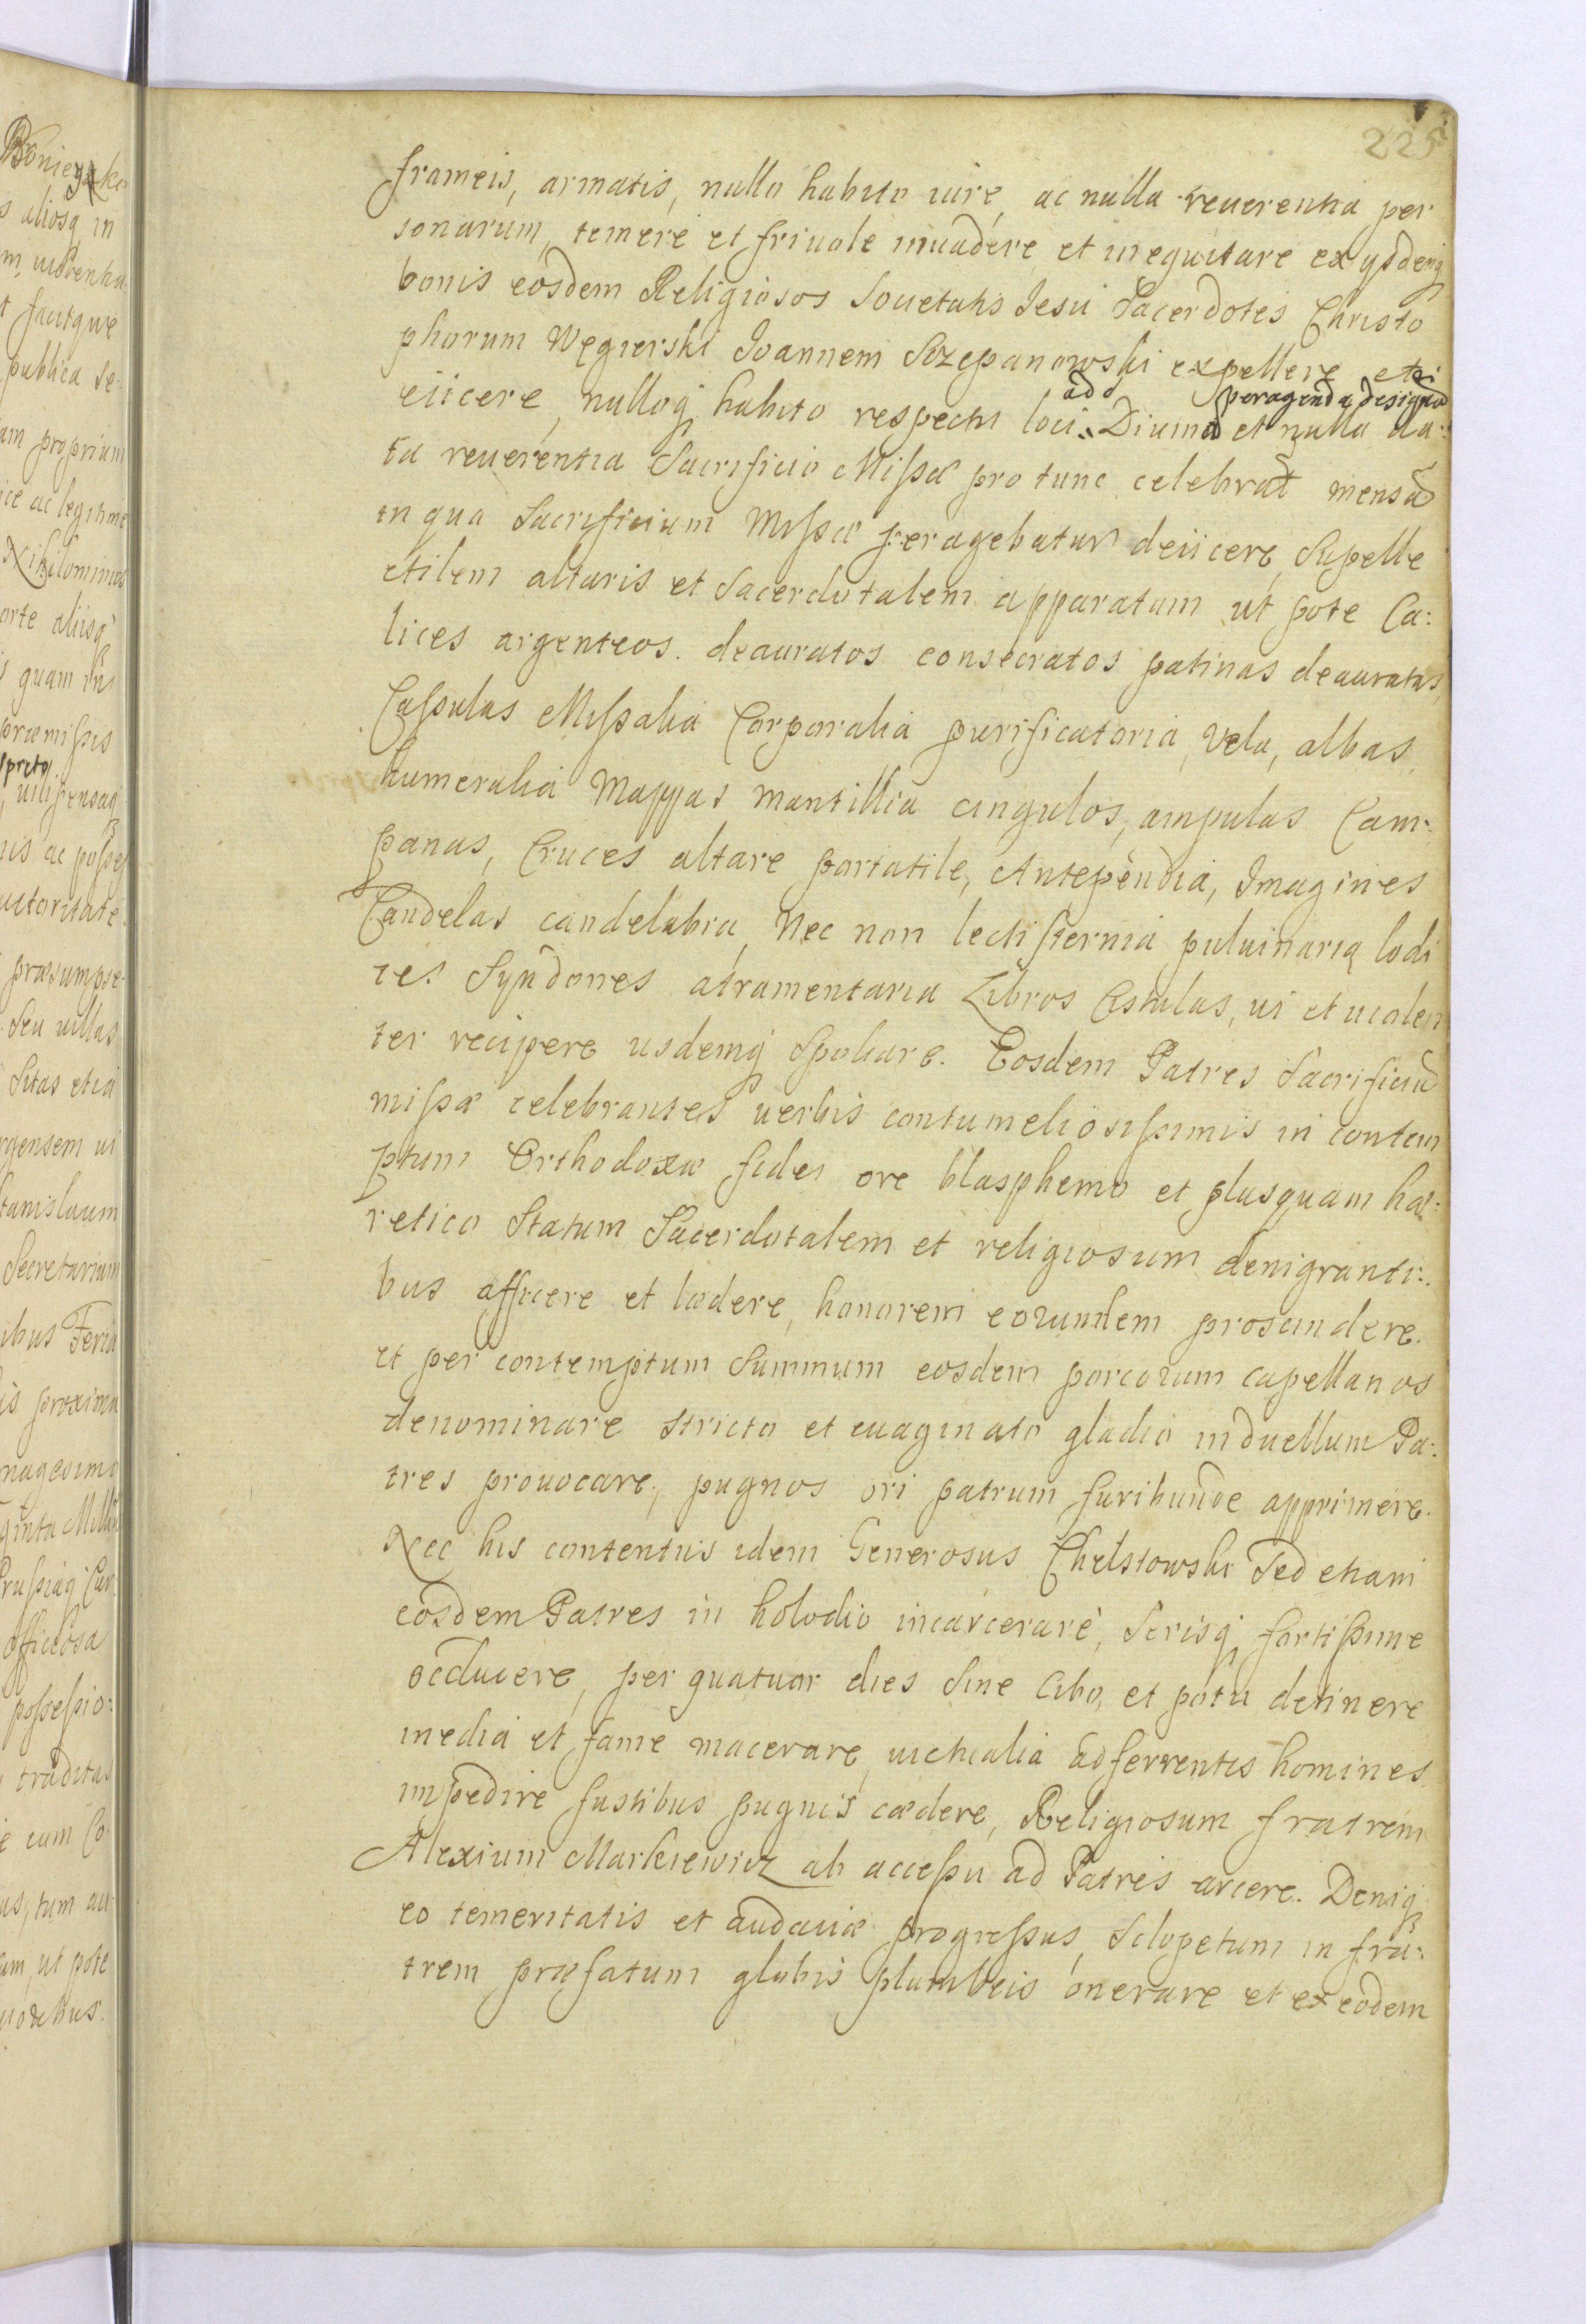 225
frameis, armatis, nullo habito iure, ac nulla reuerentia per
sonarum, temere et friuole inuadere et inequitare ex ijsdemq
bonis eosdem Religiosos Societatis Jesu Sacerdotes Christo
phorum Węgierski Joannem Szczepanowski expellere et
eiicere, nulloq habito respectu loci ad Diuina peragenda designa et nulla da:
ta reuerentia Sacrificio Missæ pro tunc celebrat mensã
in qua Sacrificium Missæ peragebatur deiicere, Supelle
ctilem altaris et Sacerdotalem apparatum ut pote Ca:
lices argenteos deauratos consecratos patinas deauratas,
Casulas Missalia Corporalia purificatoria, Vela, albas,
humeralia Mappas mantillia cingulos, ampulas Cam:
panas, Cruces altare portatile, Antependia, Imagines
Candelas candelabria, Nec non lectisternia puluinaria lodi
ces Syndones atramentaria Libros Cistulas, ui et uiolen
ter recipere iisdemq Spoliare. Eosdem Patres Sacrificiũ
missæ celebrantes uerbis contumeliosissimis in contem
ptum Orthodoxæ fidei ore blasphemo et plusquam hæ:
retico Statum Sacerdotalem et religiosum denigranti:
bus afficere et lædere, honorem eorundem proscindere.
et per contemptum Summum eosdem porcorum capellanos
denominare stricto et euaginato gladio in duellum Pa:
tres prouocare, pugnos ori patrum furibunde apprimere.
Nec his contentus idem Generosus Chelstowski Sed etiam
eosdem Patres in holodio incarcerare, Serisq fortissime
occludere, per quatuor dies Sine Cibo, et potu detinere
inedia et fame macerare, uictualia adferrentes homines
impedire fustibus pugnis cædere, Religiosum fratrem
Alexium Markiewicz ab accessu ad Patres arcere. Deniq
eo temeritatis et audaciæ progressus, Sclopetum in fra:
trem præfatum globis plumbeis onerare et ex eodem